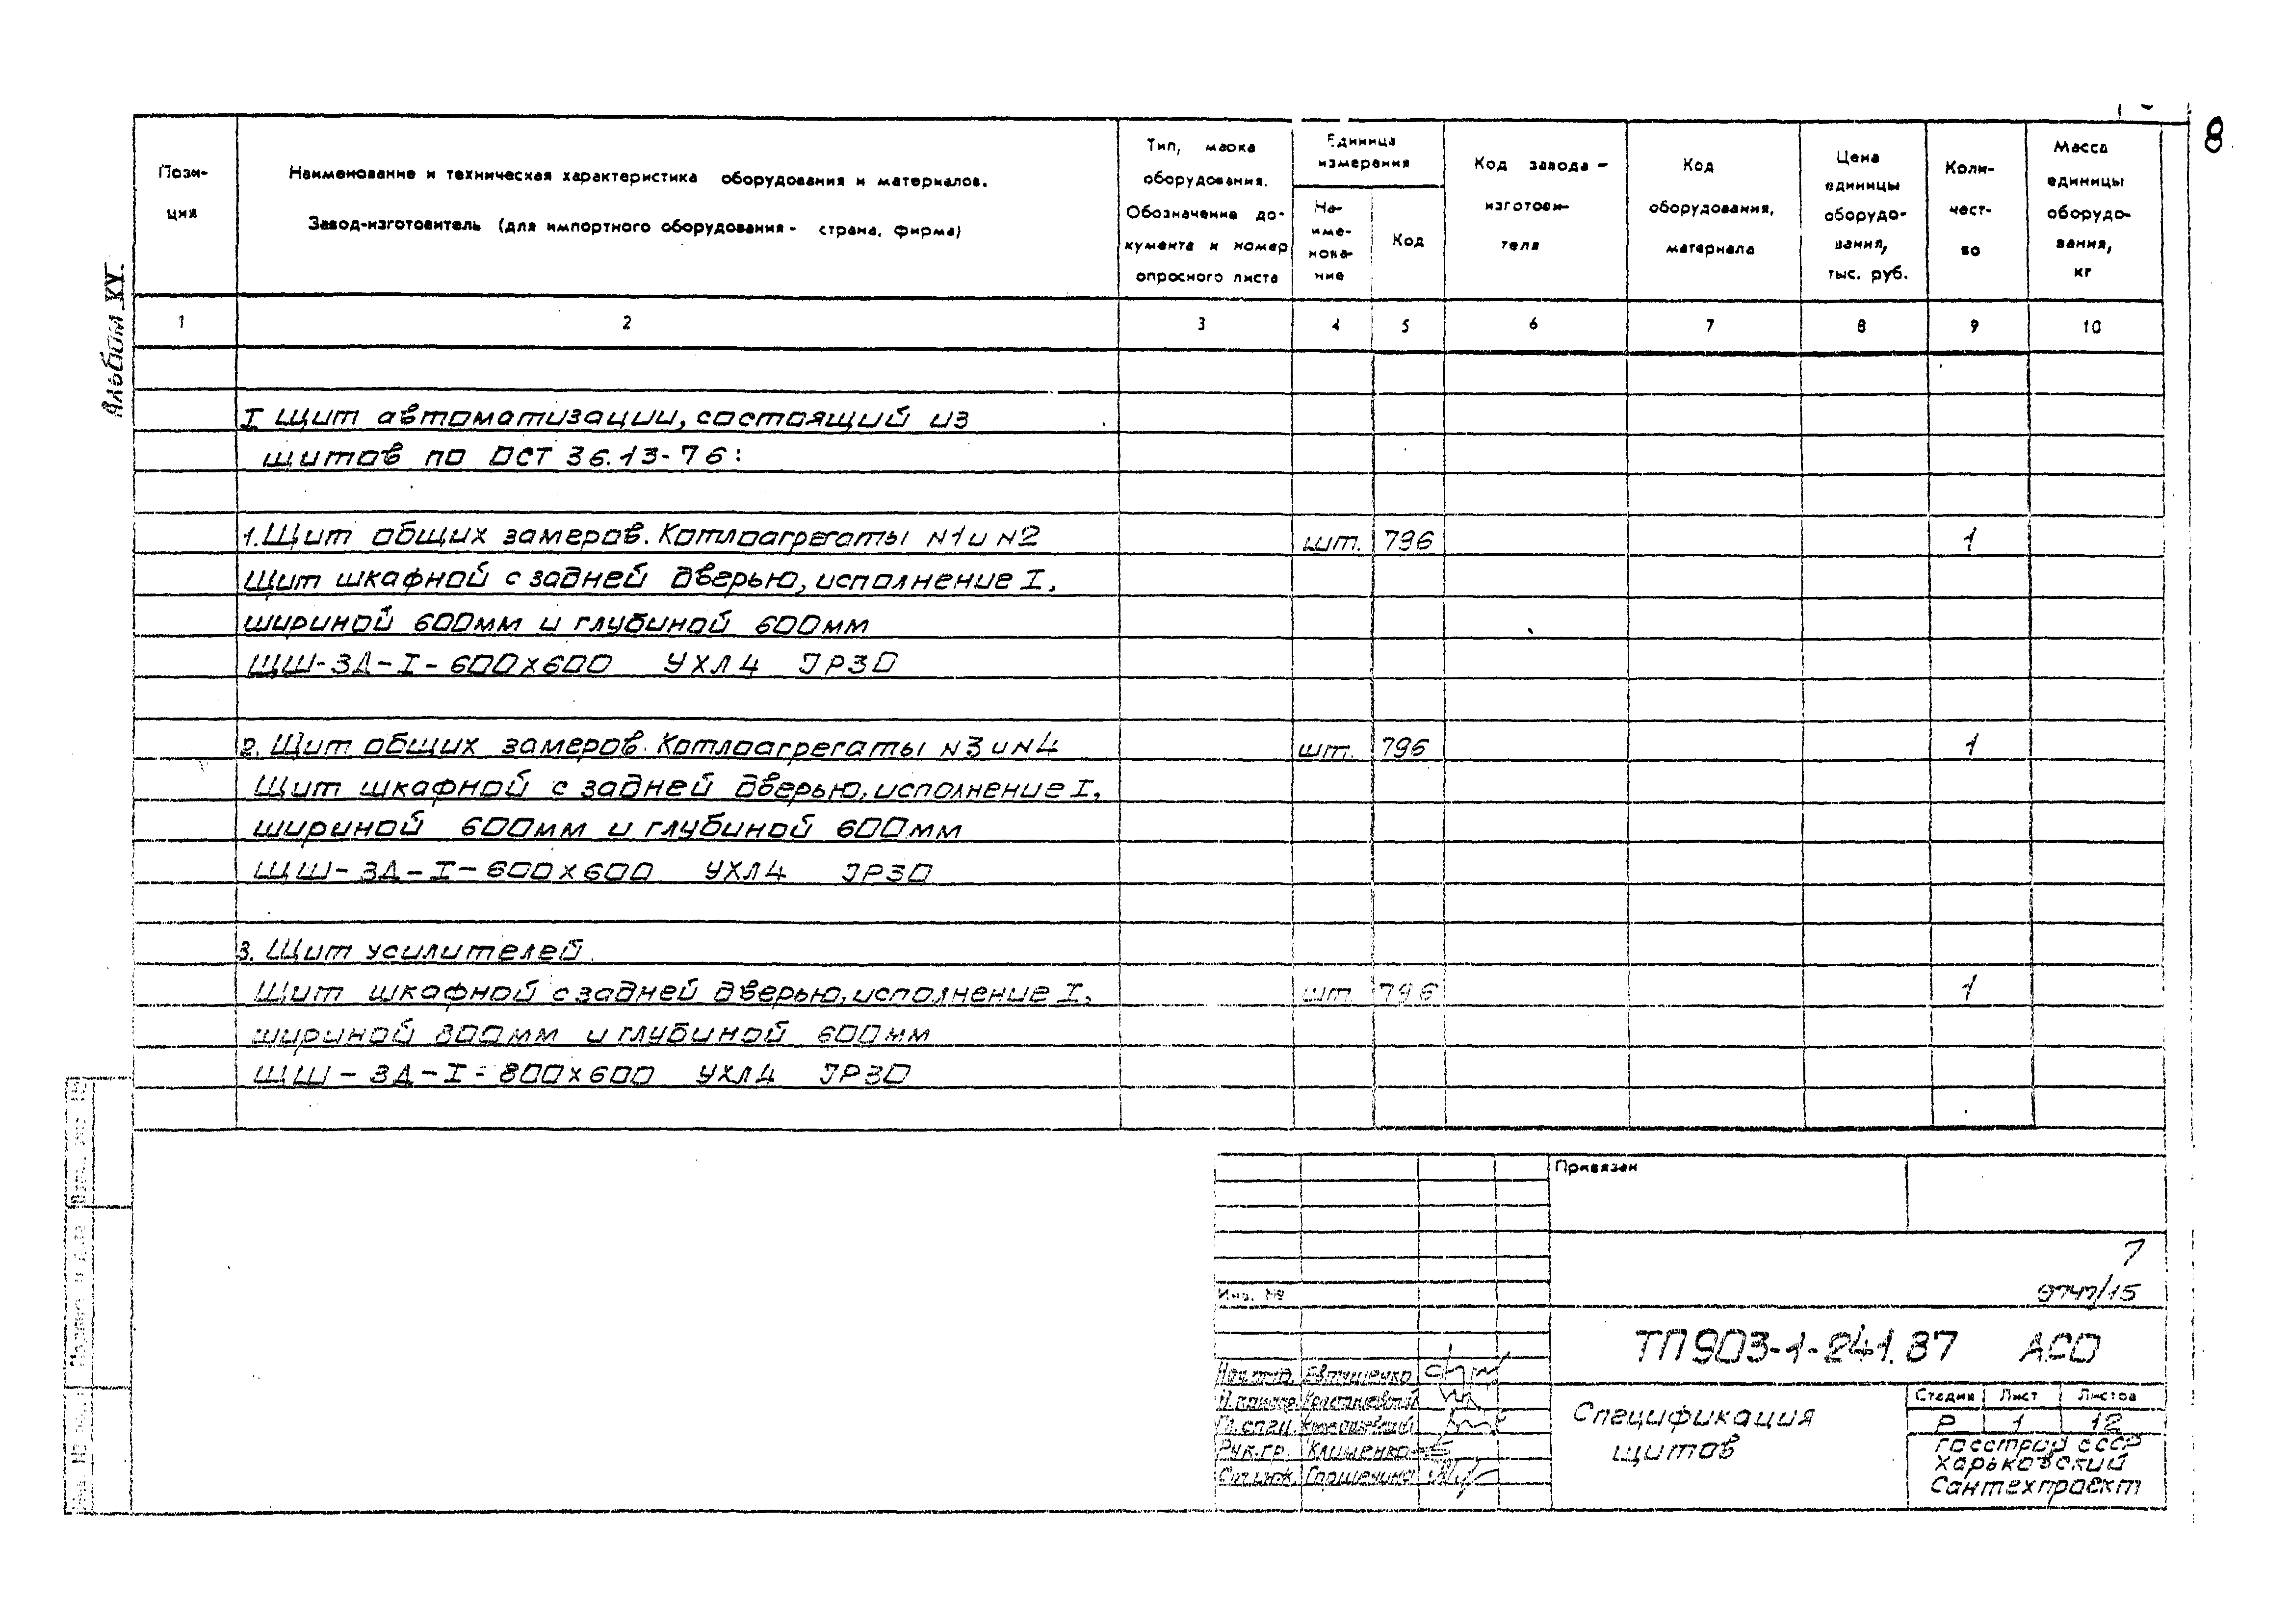 8
Альбом XV.
Пози-
ция
Наименование и техническая характеристика оборудования и материалов.
Завод-изготовитель (для импортного оборудования - страна, фирма)
Тип, марка
оборудования.
Обозначение до-
кумента и номер
опросного листа
Единица
измерения
На-
име-
нова-
ние
Код
Код завода -
изготови-
теля
Код
оборудования,
материала
Цена
единицы
оборудо-
вания,
тыс. руб.
Коли-
чест-
во
Масса
единицы
оборудо-
вания,
кг
1 2 3 4 5 6 7 8 9 10
I Щит автоматизации, состоящий из
щитов по ОСТ 36.13-76:
1. Щит общих замеров. Котлоагрегаты N1 и N2 шт. 796 1
Щит шкафной с задней дверью, исполнение I,
шириной 600мм и глубиной 600мм
ЩШ-ЗД-I-600х600 УХЛ4 IP30
2. Щит общих замеров. Котлоагрегаты N3 и N4 шт. 796 1
Щит шкафной с задней дверью, исполнение I,
шириной 600мм и глубиной 600мм
ЩШ-ЗД-I-600х600 УХЛ4 IP30
3. Щит усилителей
Щит шкафной с задней дверью, исполнение I, шт 796 1
шириной 800мм и глубиной 600мм
ЩШ-ЗД-I-800х600 УХЛ4 IP30
Привязан
7
Инв. №
ТП 903-1-241.87 АСО
Нач.отд.
Н.контр.
Гл.спец.
Рук.гр. Клименко
Спецификация
щитов
Стадия Лист Листов
Р 1 12
Госстрой СССР
Харьковский
Сантехпроект
Подпись и дата